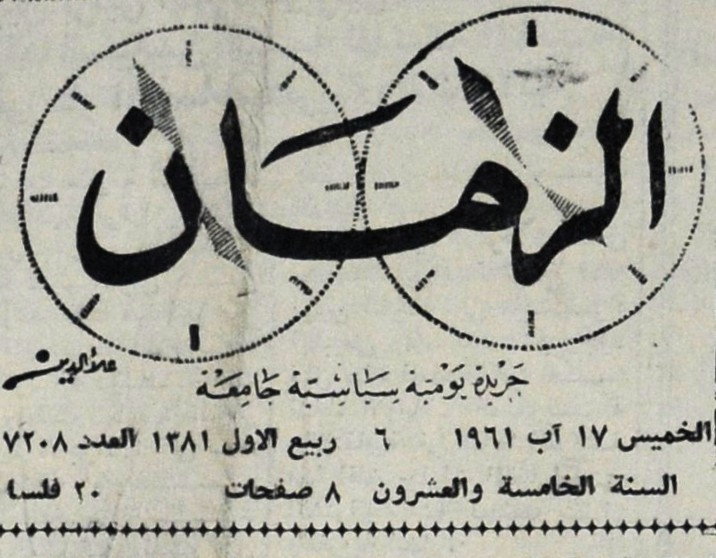 الزمان
علاءالدين
جريدة يومية سياسية جامعة
الخميس ١٧ آب ١٩٦١ ٦ ربيع الاول ١٣٨١ العدد ٧٢٠٨
السنة الخامسة والعشرون ٨ صفحات ٢٠ فلسا